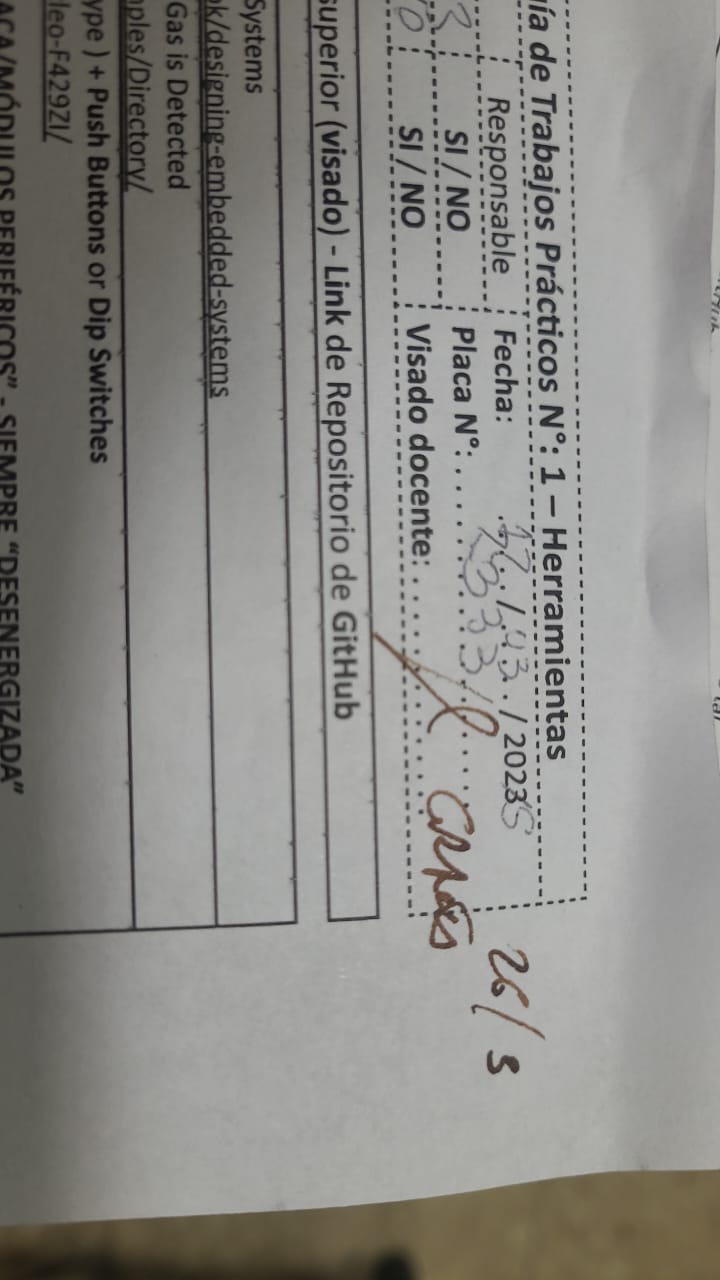 ía de Trabajos Prácticos N°: 1 – Herramientas
Responsable Fecha: / / 2023 5 26/3
3 SI / NO Placa N°: 333
0 SI / NO Visado docente:
superior (visado) - Link de Repositorio de GitHub
Systems
ok/designing-embedded-systems
Gas is Detected
ples/Directory/
ype ) + Push Buttons or Dip Switches
leo-F429ZI/
ACA/MÓDULOS PERIFÉRICOS" - SIEMPRE "DESENERGIZADA"